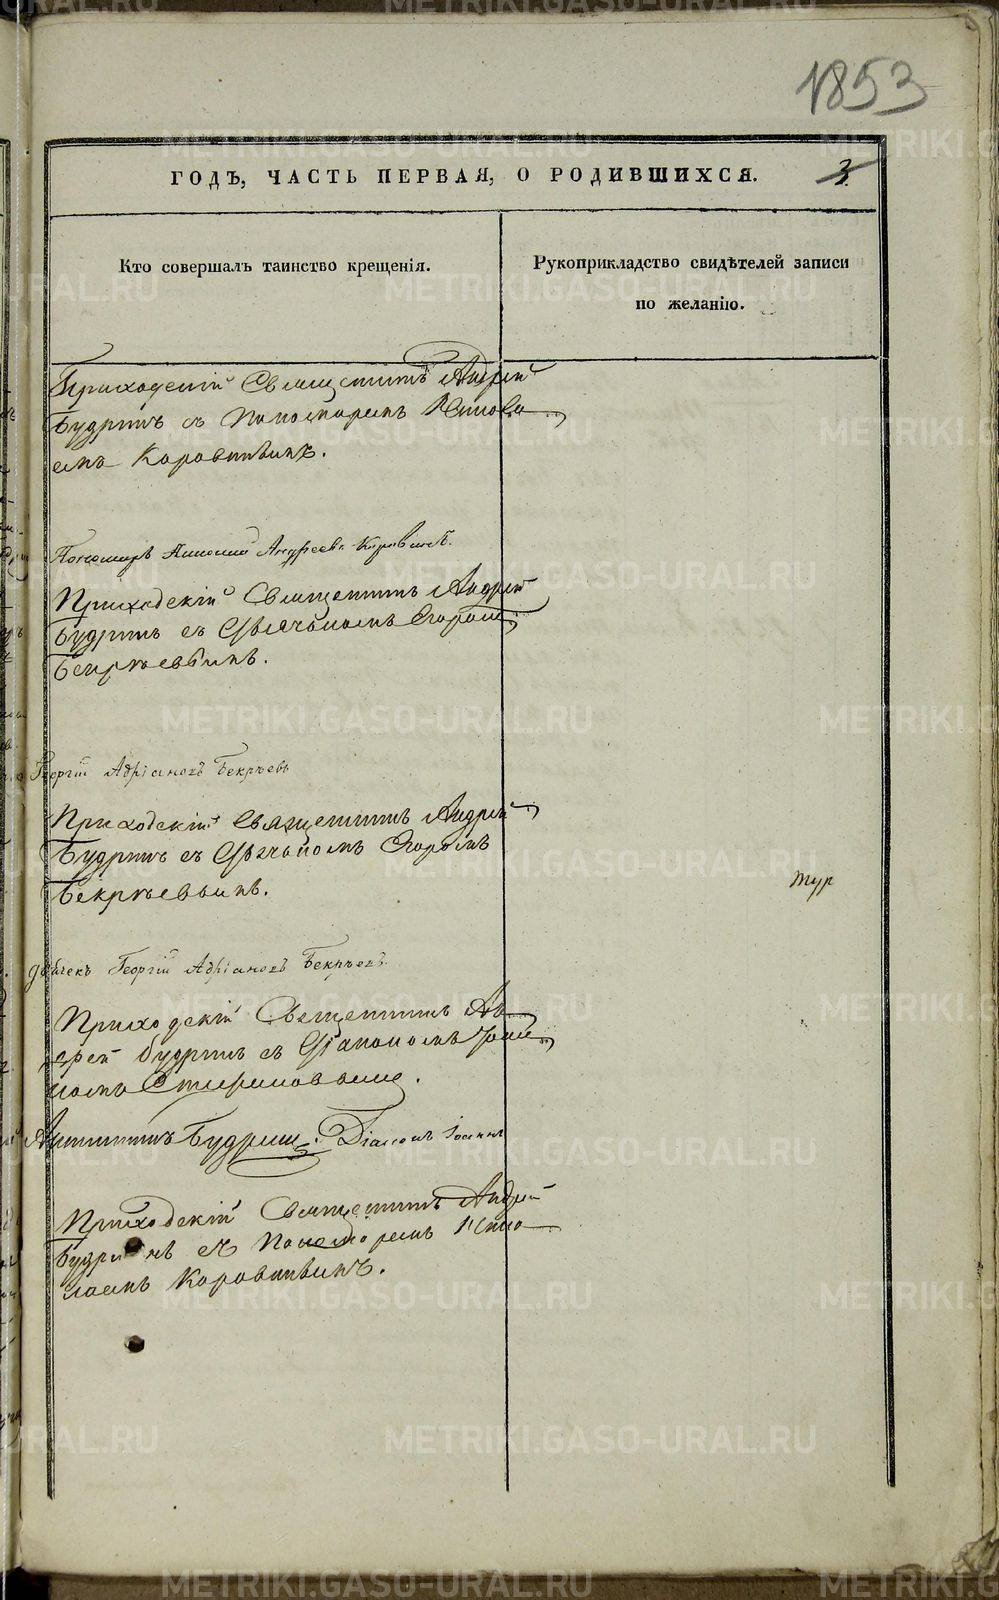 1853
ГОДЪ, ЧАСТЬ ПЕРВАЯ, О РОДИВШИХСЯ.
3
Кто совершалъ таинство крещенія.
Рукоприкладство свидѣтелей записи
по желанію.
Приходскій Священникъ Андрей
Будринъ съ Пономаремъ
емъ Коровинымъ.
Пономарь Андреевъ Коровинъ.
Приходскій Священникъ Андрей
Будринъ съ Дьячькомъ Егоромъ
Бекрѣевымъ.
Георгій Адріановъ Бекрѣевъ
Приходскій Священникъ Андрей
Будринъ съ Дьячькомъ Егоромъ
Бекрѣевымъ.
тур
дьячекъ Георгій Адріановъ Бекрѣевъ
Приходскій Священникъ Ан
дрей Будринъ съ Діакономъ Іоан
номъ
Будринъ. Діаконъ Іоаннъ
Приходскій Священникъ Андрей
Будринъ съ Пономаремъ
Коровинымъ.
METRIKI.GASO-URAL.RU